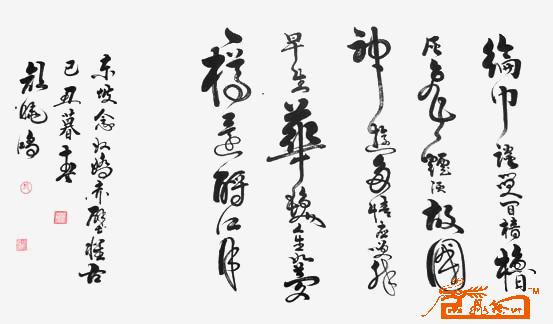 綸巾談笑間檣櫓
灰飛煙滅故國
神遊多情應笑我
早生華髮人生如夢
一樽還酹江月
東坡念奴嬌赤壁懷古
己丑暮春